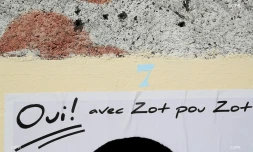 7
Oui! avec Zot pou Zot